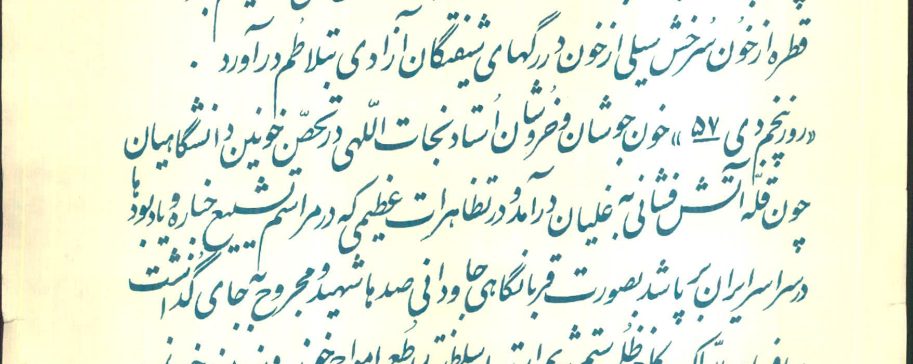 قطره از خون سرخش سیلی از خون در رگهای شیفتگان آزادی بتلاطم درآورد .
«روز پنجم دی ۵۷» خون جوشان و خروشان اُستاد نجات اللّهی در تحصّن خونین دانشگاهیان
چون قلّه آتش فشانی به غلیان درآمد و در تظاهرات عظیمی که در مراسم تشییع جنازه و یادبودها
در سراسر ایران برپا شد بصورت قربانگاهی جاودانی صدها شهید و مجروح به جای گذاشت